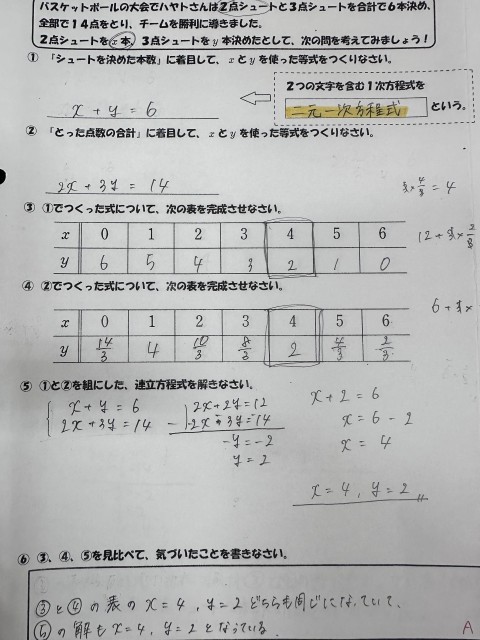 バスケットボールの大会でハヤトさんは2点シュートと3点シュートを合計で6本決め、
全部で14点をとり、チームを勝利に導きました。
2点シュートをx本、3点シュートをy本決めたとして、次の問を考えてみましょう!
① 「シュートを決めた本数」に着目して、xとyを使った等式をつくりなさい。
x + y = 6
2つの文字を含む1次方程式を
二元一次方程式 という。
② 「とった点数の合計」に着目して、xとyを使った等式をつくりなさい。
2x + 3y = 14
= 4
③ ①でつくった式について、次の表を完成させなさい。
x 0 1 2 3 4 5 6
y 6 5 4 3 2 1 0
④ ②でつくった式について、次の表を完成させなさい。
x 0 1 2 3 4 5 6
y 14/3 4 10/3 8/3 2 4/3 2/3
⑤ ①と②を組にした、連立方程式を解きなさい。
x + y = 6
2x + 3y = 14
2x + 2y = 12
- 2x + 3y = 14
-y = -2
y = 2
x + 2 = 6
x = 6 - 2
x = 4
x = 4 , y = 2
⑥ ③、④、⑤を見比べて、気づいたことを書きなさい。
③と④の表のx = 4 , y = 2どちらも同じになっていて、
⑤の解もx = 4 , y = 2となっている。
A